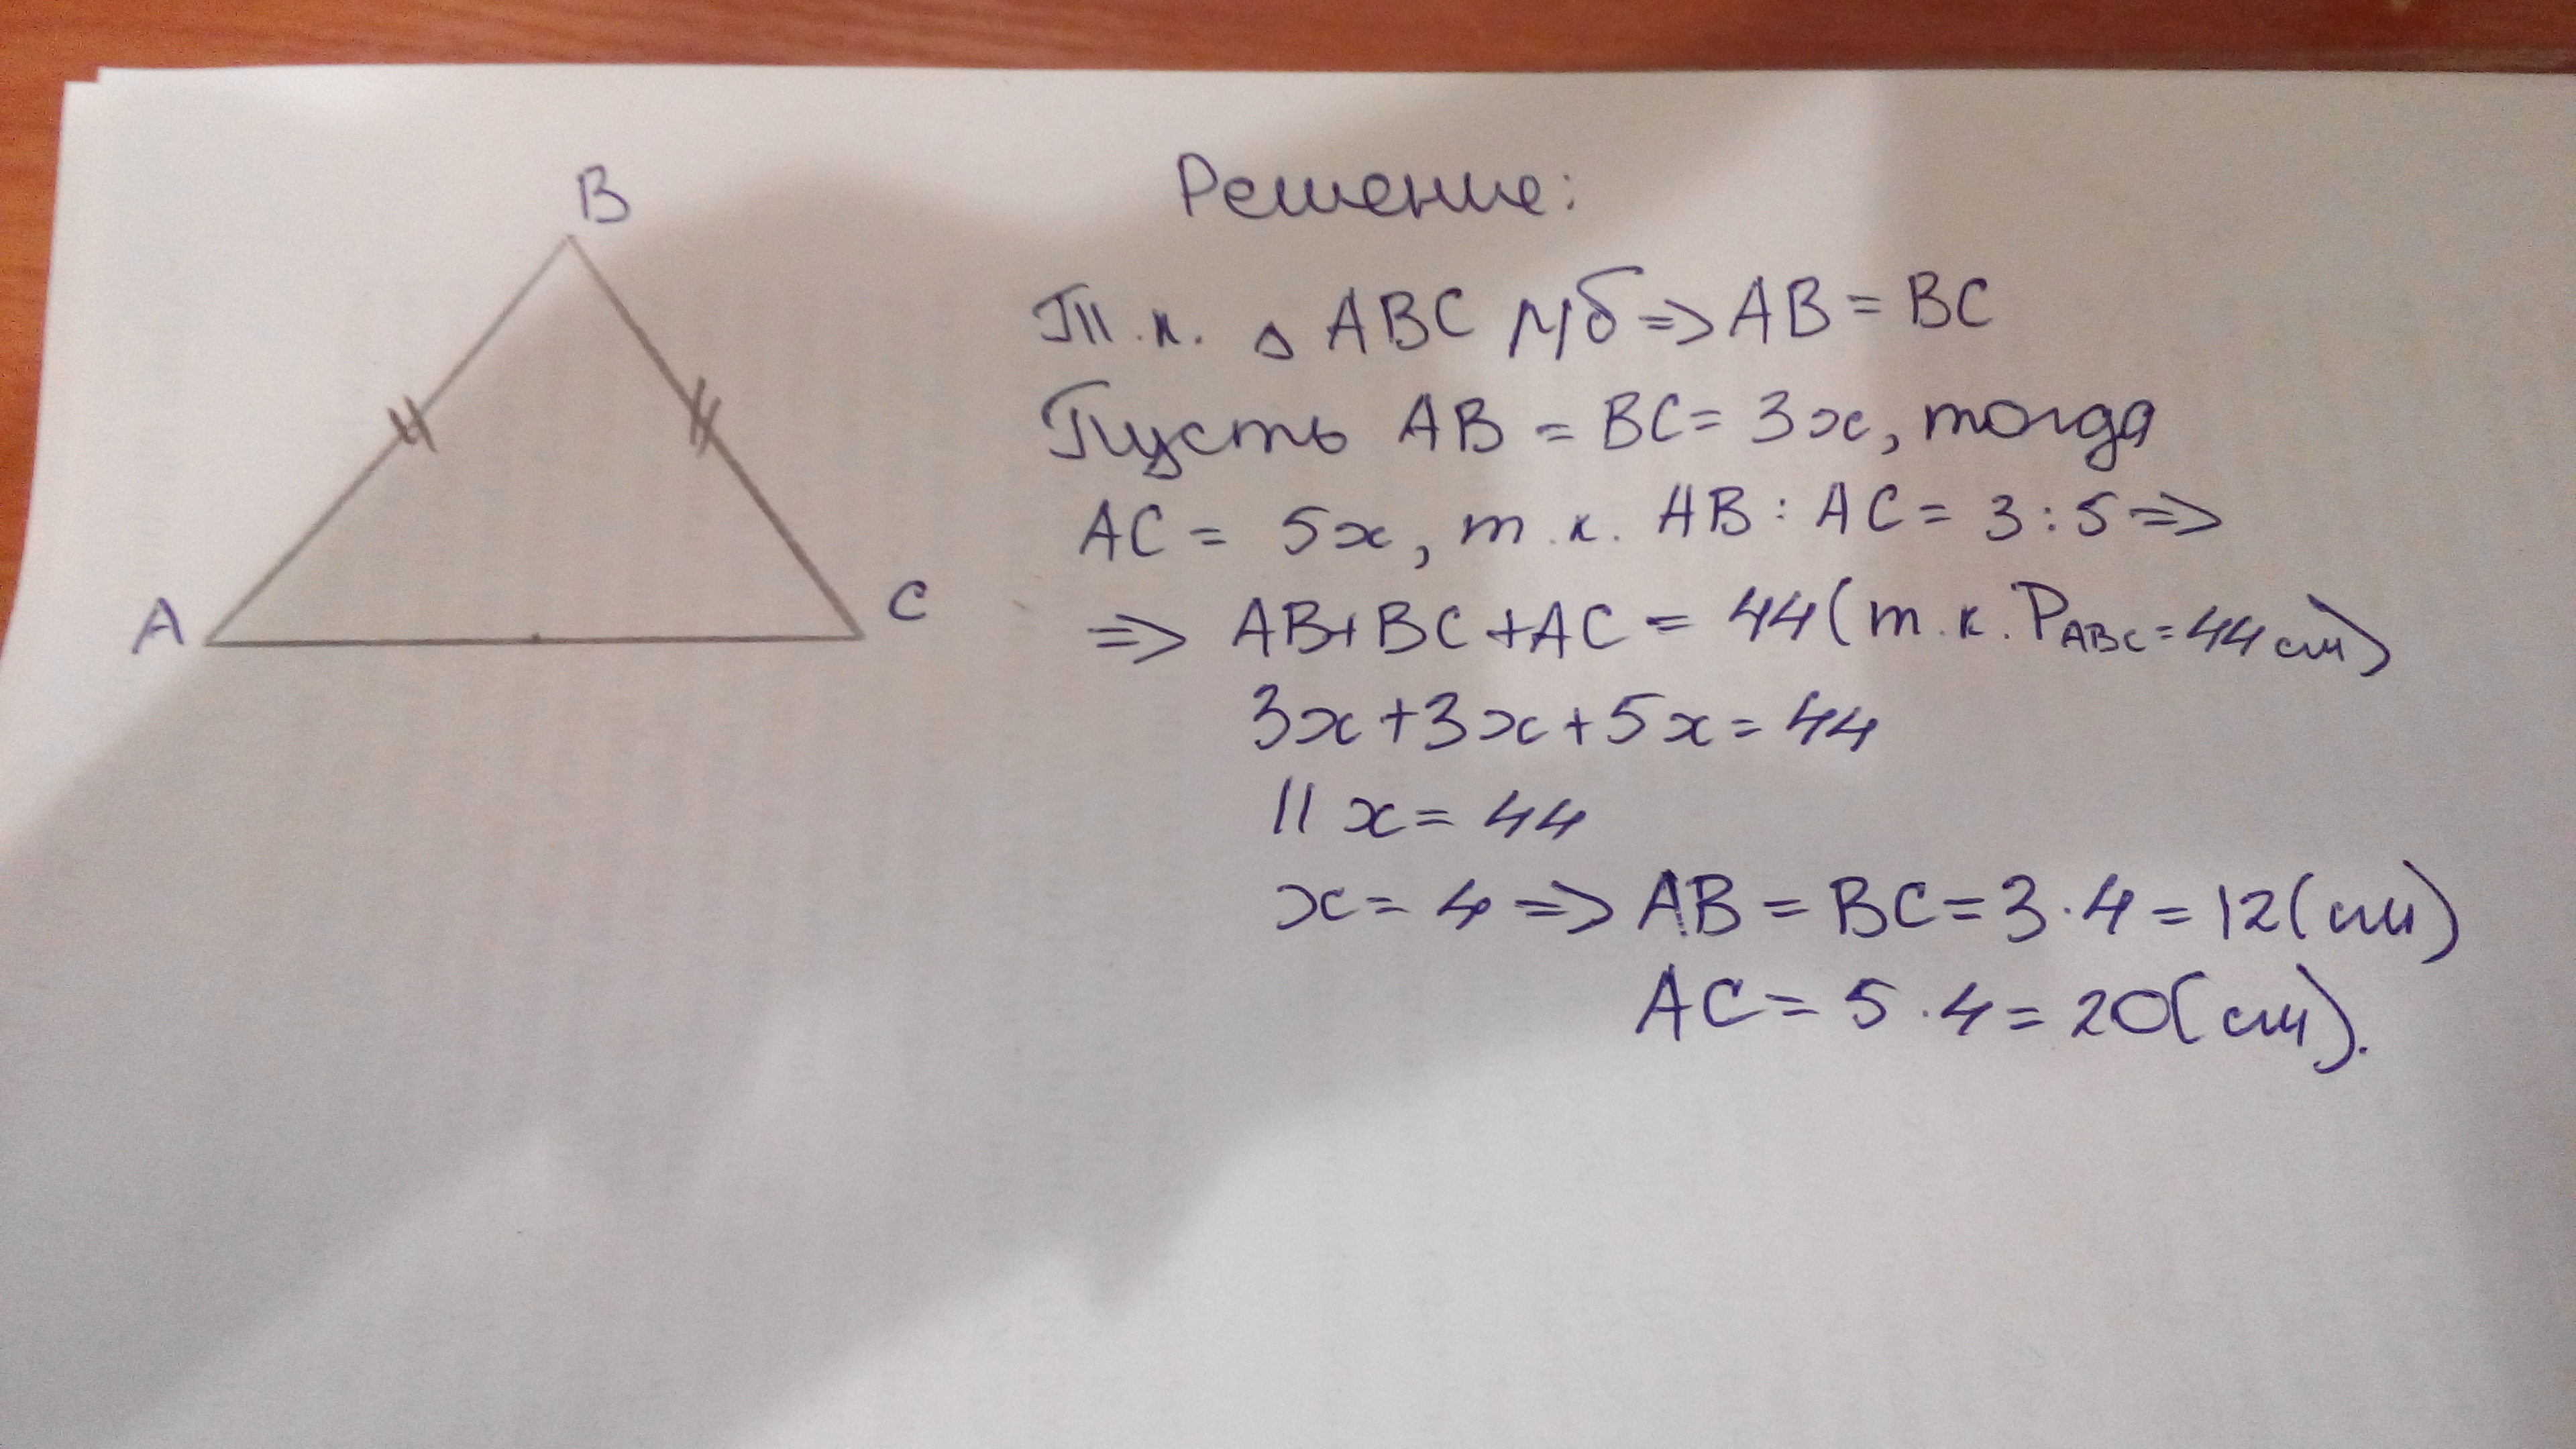 B
A
C
Решение:
Т.к. △ ABC р/б => AB = BC
Пусть AB = BC = 3x, тогда
AC = 5x, т.к. AB : AC = 3 : 5 =>
=> AB + BC + AC = 44 (т.к. PABC = 44 см)
3x + 3x + 5x = 44
11x = 44
x = 4 => AB = BC = 3 · 4 = 12 (см)
AC = 5 · 4 = 20 (см).